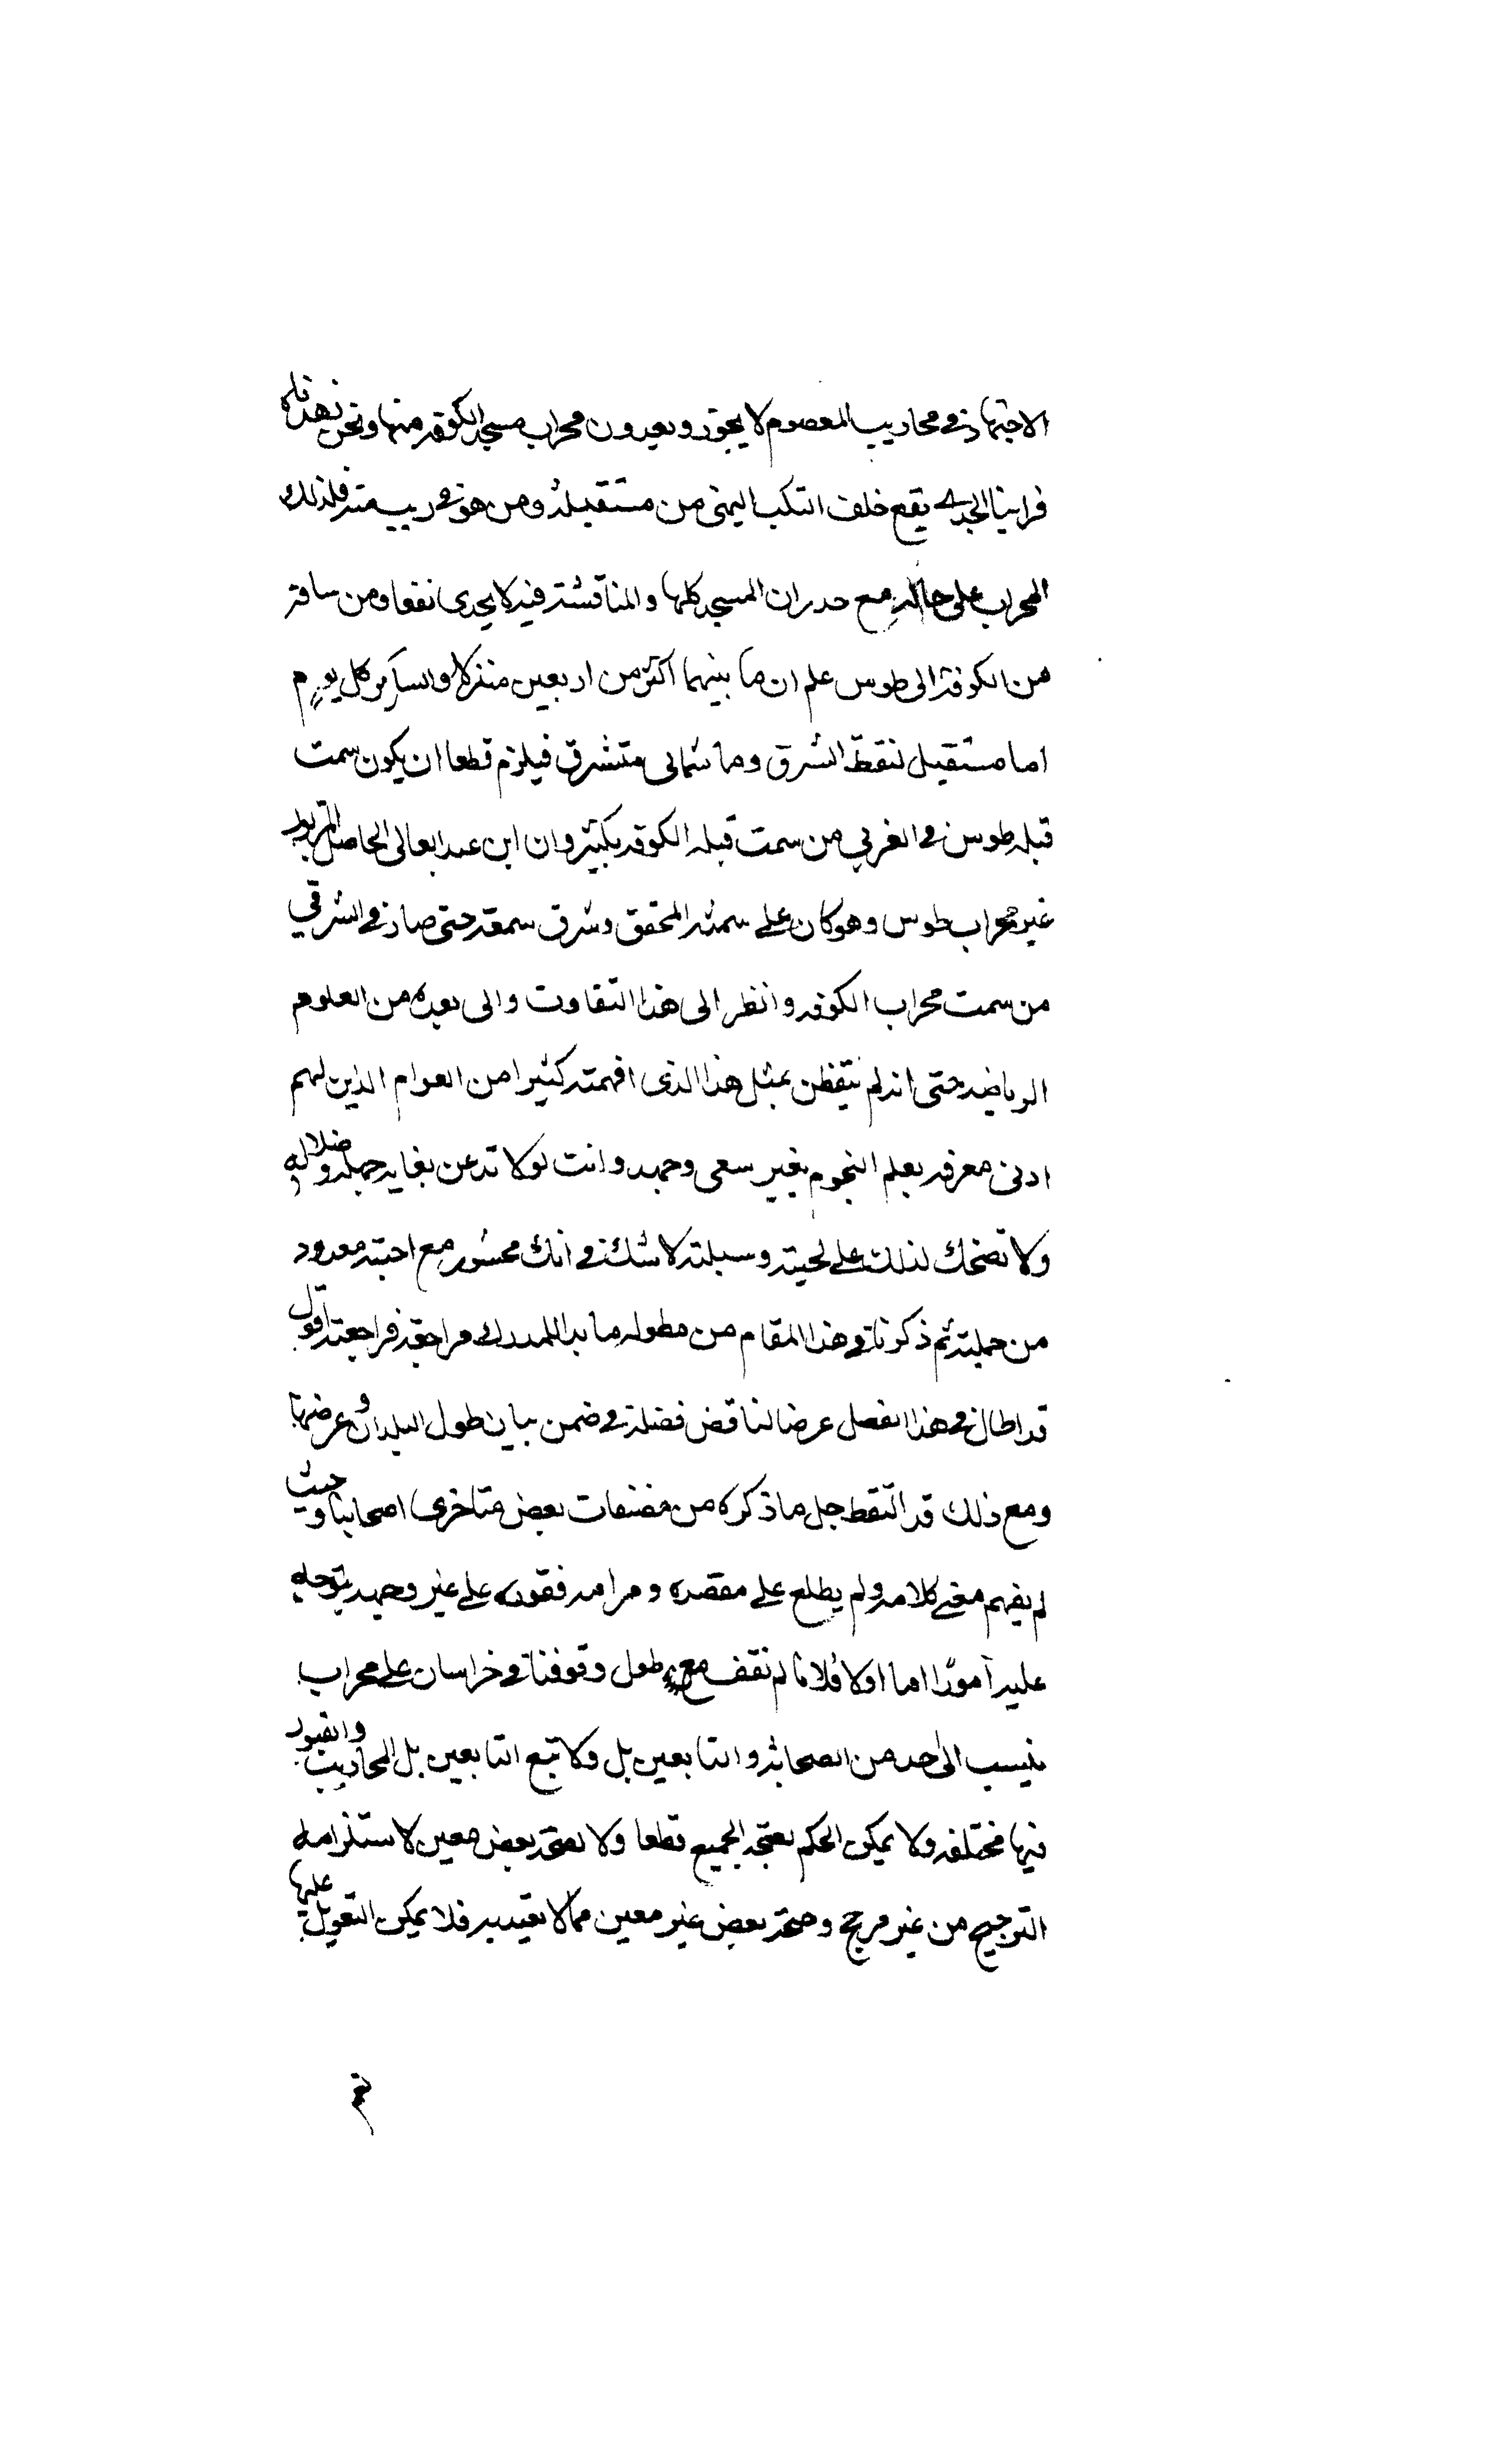 الاجتهاد في محاريب المعصوم لا يجوز ويعدون محراب مسجد الكوفه منها ونحن
فراينا الجدى يقع خلف المنكب اليمنى من مستقبله ومن هو في ريب منه فلذلك
المحراب على حاله مع جدران المسجد كلها والمناقشة فيه لا يجدى نفعا ومن سافر
من الكوفة الى طوس علم ان ما بينهما اكثر من اربعين منزلا والساير كل يوم
اما مستقبل نقطة الشرق وما شمالى متشرق فيلزم قطعا ان يكون سمت
قبله طوس في الغربي من سمت قبله الكوفه بكثير وان ابن عبد العالى الجاهل
غير محراب طوس وهو كان على سمته المحقق وشرق سمته حتى صار في الشرقي
من سمت محراب الكوفه وانظر الى هذا التفاوت والى بعده من العلوم
الرياضيه حتى انه لم يتفطن بمثل هذا الذى افهمته كثيرا من العوام الذين لهم
ادنى معرفه بعلم النجوم بغير سعى وجهد وانت لو لا تذعن بغايه جهله وضلاله
ولا تضحك لذلك على لحيته وسبلته لا شك في انك محشور مع احبته معدود
من جملته ثم ذكرنا في هذا المقام من مطوله ما بدا للمدرك مراجعته فراجعته اقول
قد اطال في هذا الفصل عرضا لناقص فضله في ضمن بيان طول البلدان وعرضها
ومع ذلك قد التقط جل ما ذكره من مصنفات بعض متاخرى اصحابنا وحيث
لم يفهم معنى كلامه ولم يطلع على مقصده ومرامه فقوده على غير وجهه يتوجه
عليه امورا اما اولا فلانا لم نقف مع طول وقوفنا في خراسان على محراب
ينسب الى احد من الصحابة والتابعين بل ولا تبع التابعين بل المحاريب والقبور
فيها مختلفه ولا يمكن الحكم بصحة الجميع قطعا ولا بصحة بعض معين لاستلزامه
الترجيح من غير مرجح وصحة بعض غير معين مما لا يفيد به فلا يمكن التعويل عليها